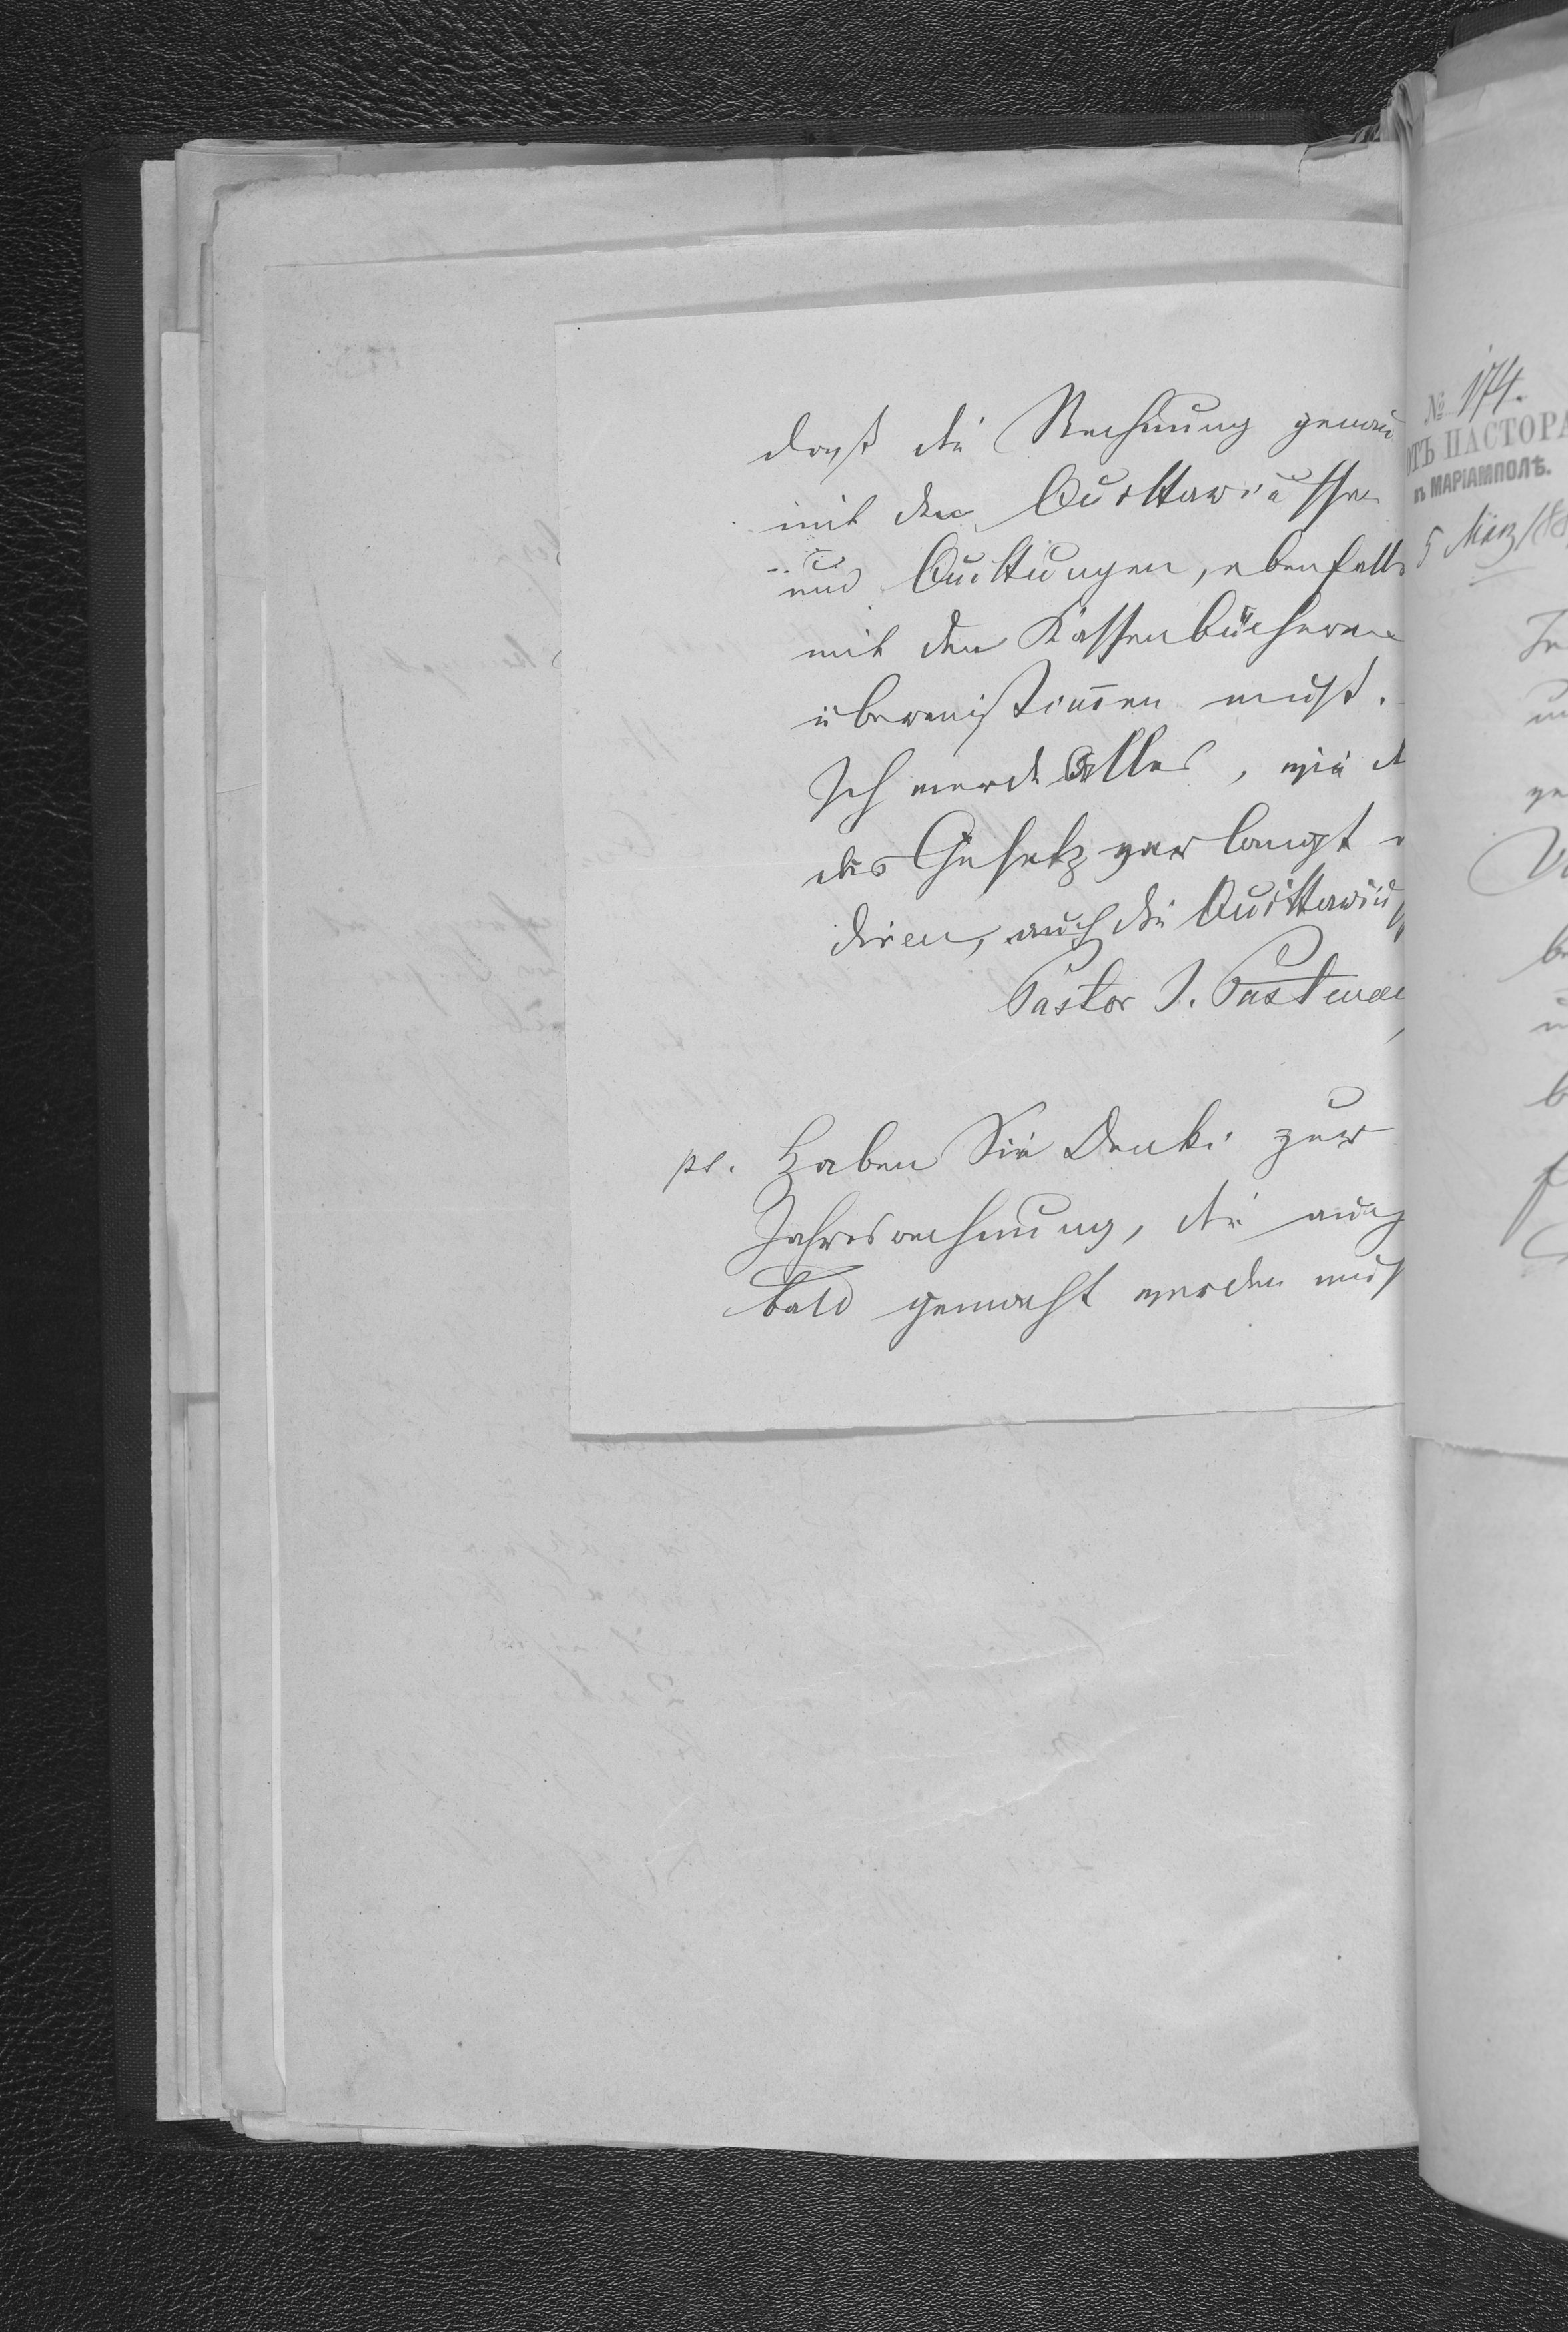 daß die Rechnung genau
mit den Quittariussen
und Quittungen, ebenfalls
mit den Kassenbüchern
übereinstimmen muß.
Ich werde Alles, wie
das Gesetz verlangt
diren, auch die Quittarius
Pastor J. Pastenac
ps. Haben Sie Danke zur
Jahresrechnung, die auch
bald gemacht werden muß
№ 174.
ОТЪ ПАСТОРА
въ МАРІАМПОЛѢ.
5 März 188